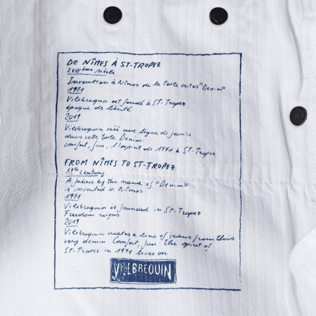 DE NÎMES À ST-TROPEZ
XVIIIème siècle
Invention à Nîmes de la toile dites "Denim"
1971
Vilebrequin est fondé à ST-Tropez
époque de liberté
2019
Vilebrequin créé une ligne de jeans
dans cette toile Denim
confort, fun, l'esprit de 1971 à ST-Tropez
FROM NÎMES TO ST-TROPEZ
18th century
A fabric by the name of "Denim"
is invented in Nîmes
1971
Vilebrequin is founded in ST-Tropez
Freedom reigns
2019
Vilebrequin creates a line of jeans from this
very denim Comfort, fun the spirit of
ST-Tropez in 1971 lives on
VILEBREQUIN